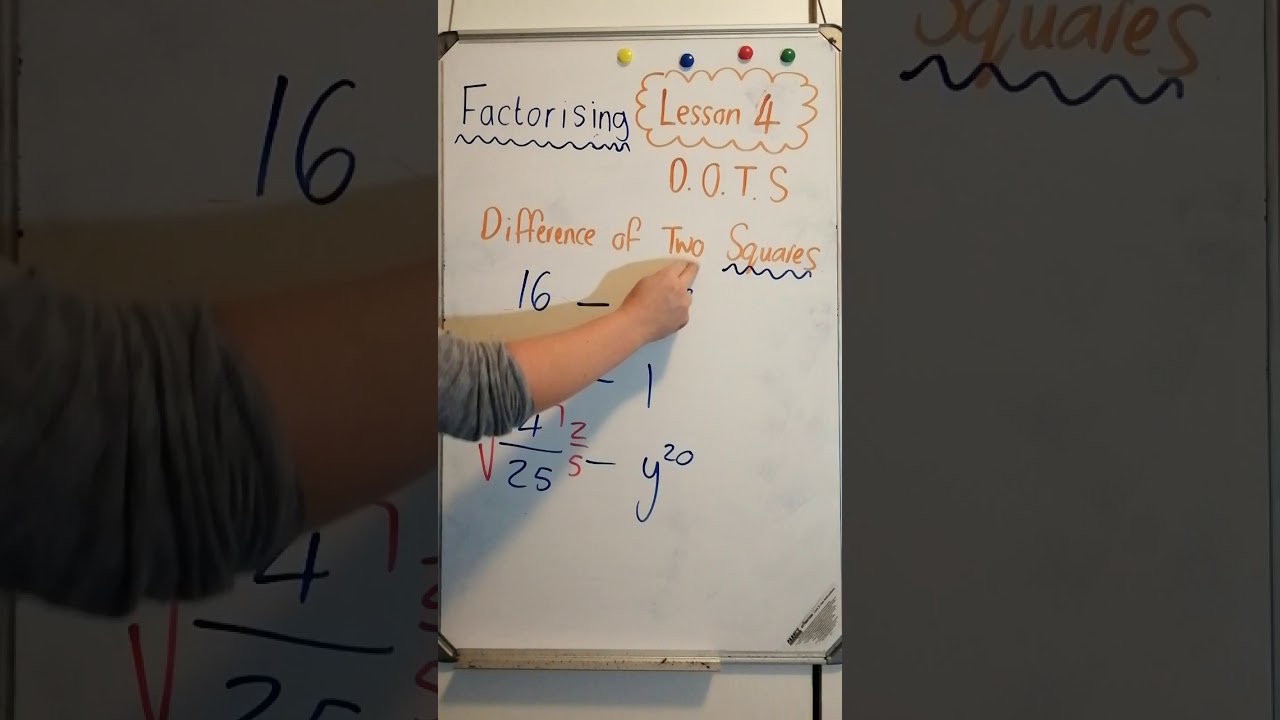 Factorising
Lesson 4
D.O.T.S
Difference of Two Squares
16 –
– 1
√4/25 2/5 – y²⁰